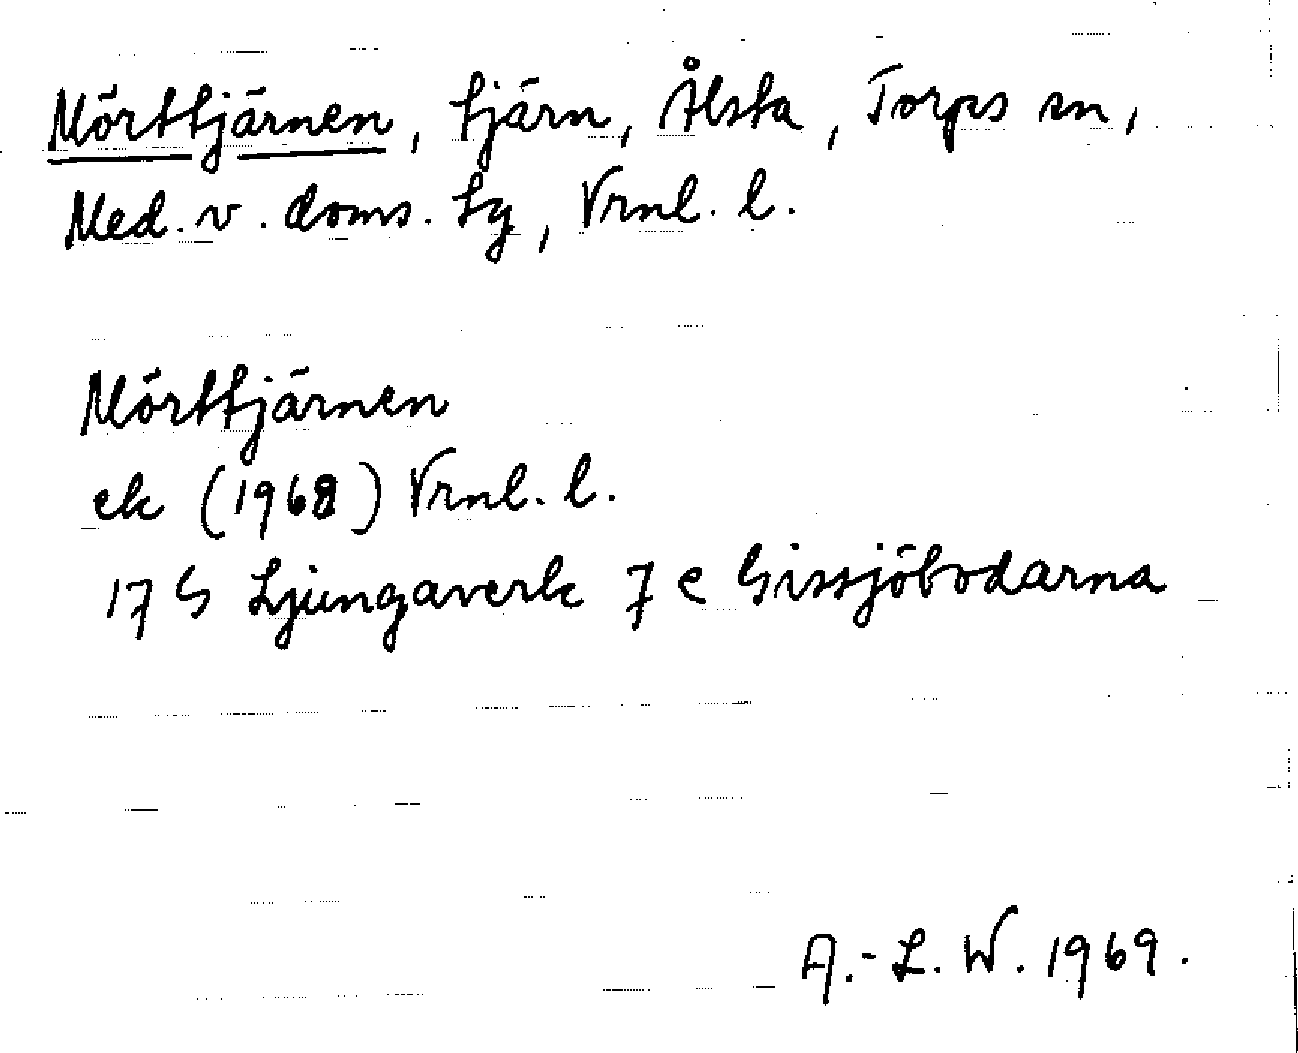 Mörttjärnen, tjärn, Ålsta, Torps sn,
Med. v. doms. tg, Vrnl. l.
Mörttjärnen
ek (1968) Vrnl. l.
17 G Ljungaverk 7 e Gissjöbodarna
A.-L. W. 1969.